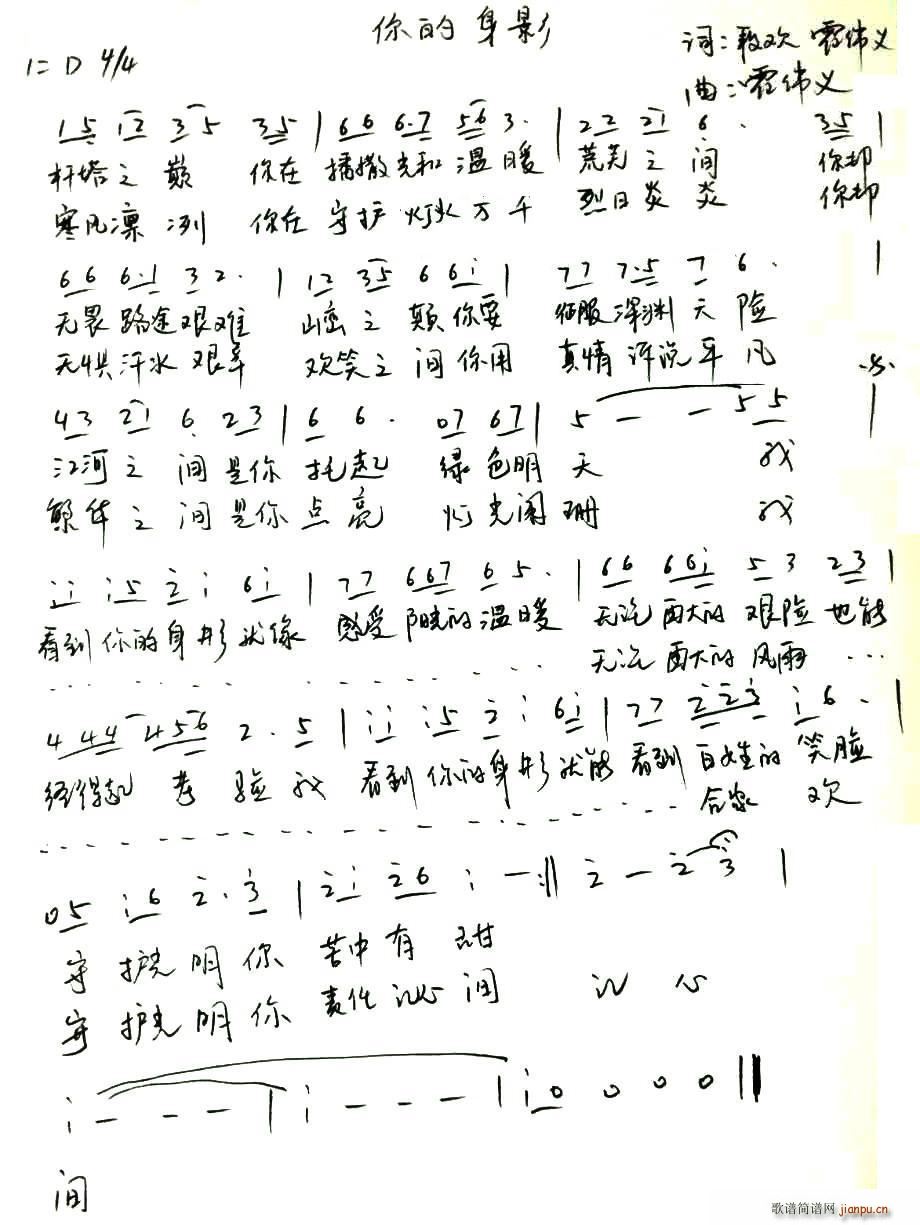 你的身影
词：段欢 霍伟义
1=D 4/4
曲：霍伟义
15 12 35 35 | 66 6·7 56 3· | 22 21 6· 35 |
杆塔之巅 你在播撒光和温暖 荒芜之间 你却
寒风凛冽 你在守护灯火万千 烈日炎炎 你却
66 6·1 3 2· | 12 35 6 6i | 77 7·5 7 6· |
无畏路途艰难 山峦之颠你要 征服深渊天险
无惧汗水艰辛 欢笑之间你用 真情诉说平凡
43 21 6 23 | 6 6· 07 67 | 5 — — 55 |
江河之间是你托起 绿色明天 我
繁华之间是你点亮 灯光阑珊 我
ii i5 2 i 6i | 77 667 6 5· | 66 66i 5 3 23 |
看到你的身形就像 感受阳光的温暖 无论再大的艰险也能
无论再大的风雨
444 456 2· 5 | ii i5 2 i 6i | 77 223 i 6· |
经得起考验我 看到你的身形就能看到百姓的笑脸
合家 欢
05 i6 2· 3 | 2i 26 i — :|| 2 — 2 3 |
守护光明你 苦中有甜
守护光明你 责任心间 心
i — — — | i — — — | i0 0 0 0 ||
间
歌谱简谱网 jianpu.cn